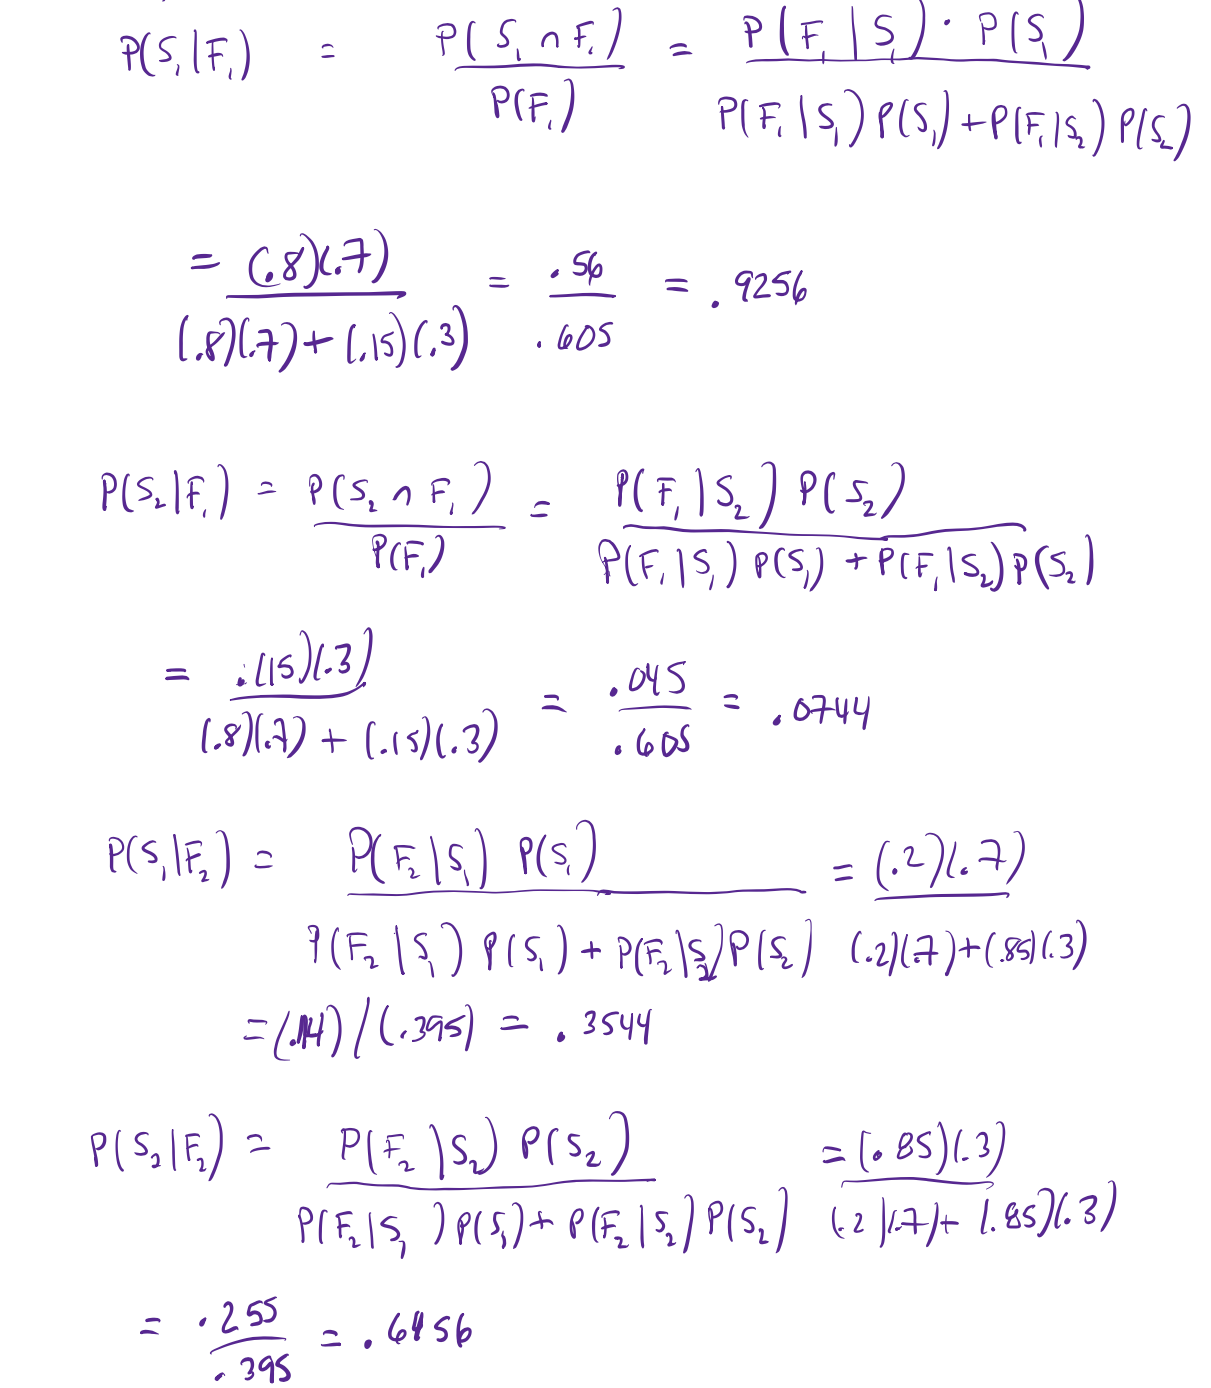 P(S₁|F₁) = P(S₁ ∩ F₁) / P(F₁) = P(F₁|S₁) · P(S₁) / P(F₁|S₁) P(S₁) + P(F₁|S₂) P(S₂)
= (.8)(.7) / (.8)(.7) + (.15)(.3) = .56 / .605 = .9256
P(S₂|F₁) = P(S₂ ∩ F₁) / P(F₁) = P(F₁|S₂) P(S₂) / P(F₁|S₁) P(S₁) + P(F₁|S₂) P(S₂)
= .(15)(.3) / (.8)(.7) + (.15)(.3) = .045 / .605 = .0744
P(S₁|F₂) = P(F₂|S₁) P(S₁) / P(F₂|S₁) P(S₁) + P(F₂|S₂) P(S₂) = (.2)(.7) / (.2)(.7) + (.85)(.3)
= (.14) / (.395) = .3544
P(S₂|F₂) = P(F₂|S₂) P(S₂) / P(F₂|S₁) P(S₁) + P(F₂|S₂) P(S₂) = (.85)(.3) / (.2)(.7) + (.85)(.3)
= .255 / .395 = .6456